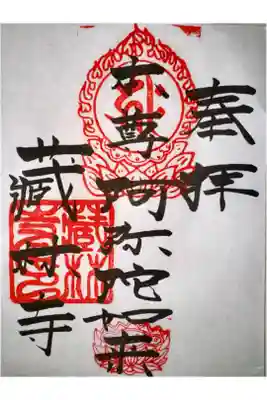 奉拝
本尊阿弥陀如来
藏林寺